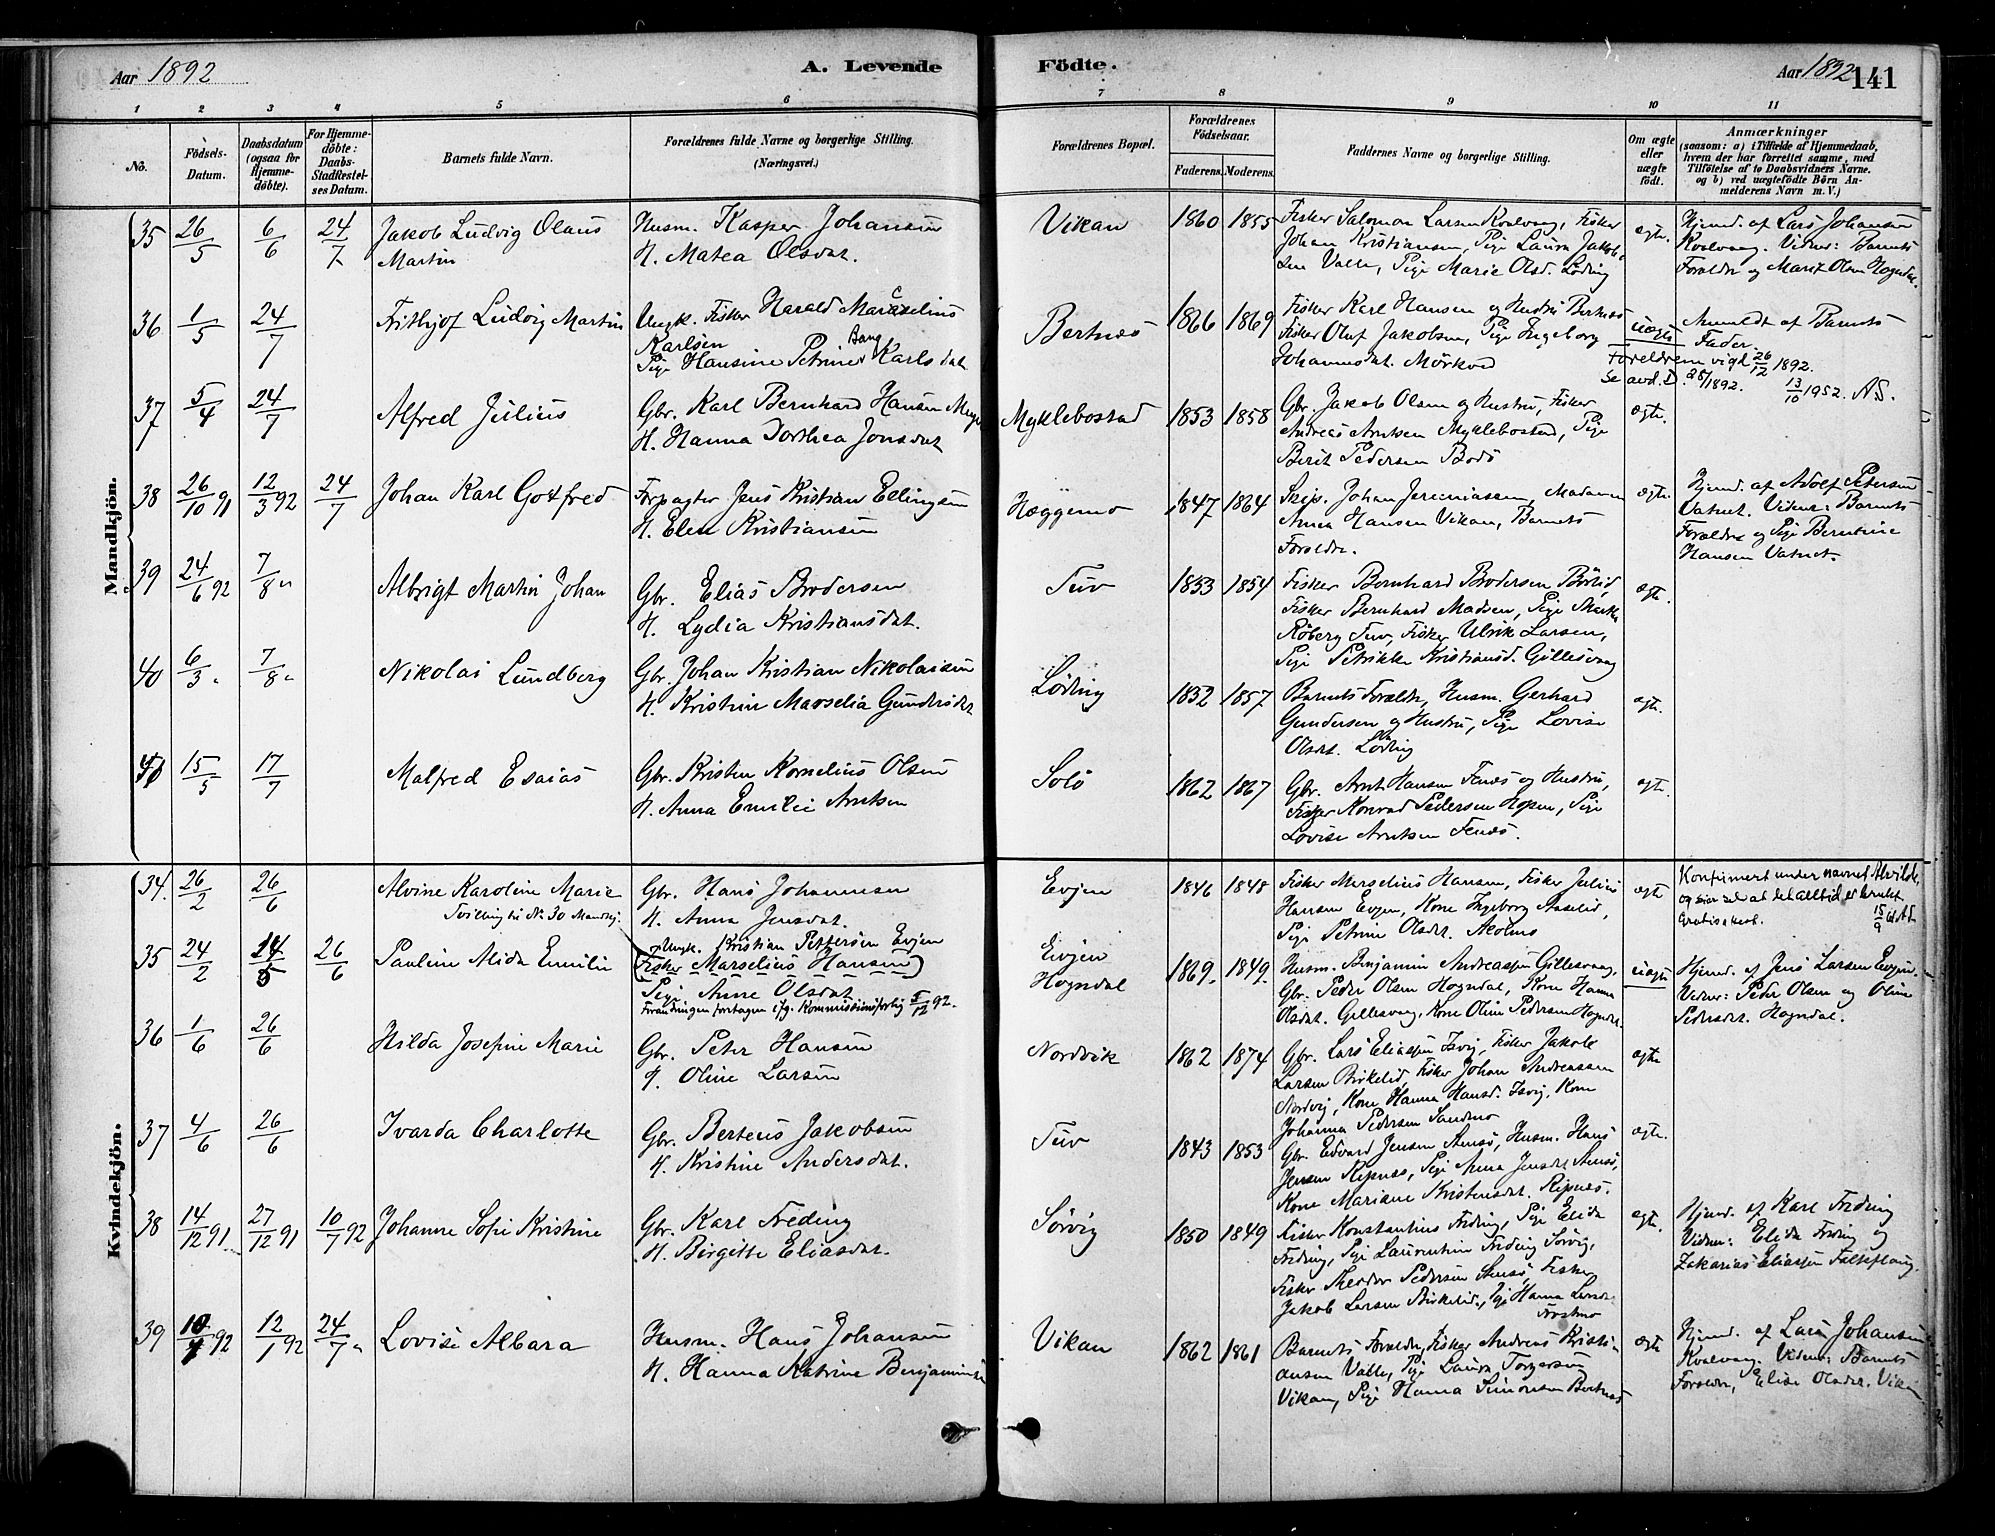 Aar 1892
A. Levende
Födte.
Aar 1892
141
1 2 3 4 5 6 7 8 9 10 11
No.
Födsels-Datum.
Daabsdatum (ogsaa for Hjemme-döbte).
For Hjemme-döbte: Daabs-Stadfæstel-ses Datum.
Barnets fulde Navn.
Forældrenes fulde Navne og borgerlige Stilling. (Næringsvei.)
Forældrenes Bopæl.
Forældrenes Födselsaar.
Faderens. Moderens.
Faddernes Navne og borgerlige Stilling.
Om ægte eller uægte födt.
Anmærkninger (saasom: a) i Tilfælde af Hjemmedaab, hvem der har forrettet samme, med Tilföielse af to Daabsvidners Navne. og b) ved uægtefödte Börn An-melderens Navn m. V.)
Mandkjön.
35 26/5 6/6 24/7 Jakob Ludvig Olaus Husm. Kasper Johansen Vikan 1860 1855 Fisker Salomon Larsen Kvalvaag, Fisker ægte. Hjmd. af Lars Johansen
Martin H. Matea Olsdat. Johan Kristiansen, Pige Laura Jakob- Kvalvaag. Vidner: Barnets
sen Valle, Pige Marie Olsd. Løding Forældre og Marit Olsen Hogndal.
36 1/5 24/7 Frithjof Ludvig Martin Ungk. Fisker Harald Marcelius Bertnæs 1866 1869 Fisker Karl Hansen og Hustru Bertnæs uægte Anmeldt af Barnets
Karlsen Fisker Oluf Jakobsen, Pige Ingeborg Fader.
Pige Hansine Petrine Bang Karlsdat Johannesdat. Mörkved Foreldrene vigd 26/12 1892.
Se avd. D. 25/1892. 13/10 1952. AS.
37 5/4 24/7 Alfred Julius Gbr. Karl Bernhard Hansen Myklebostad 1853 1858 Gbr. Jakob Olsen og Hustru, Fisker ægte.
H. Hanna Dorthea Jonsdat Andreas Arntsen Myklebostad, Pige
Berit Pedersen Bodö
38 26/10 91 12/3 92 24/7 Johan Karl Gotfred Forpagter Jens Kristian Ellingsen Hæggemo 1847 1864 Johan Jeremiassen, Madamme ægte. Hjmd. af Adolf Petersen
H. Elen Kristiansen Anna Hansen Vikan, Barnets Vatnet. Vidner: Barnets
Forældre. Forældre og Pige Berntine
Hansen Vatnet.
39 24/6 92 7/8 " Albrigt Martin Johan Gbr. Elias Brodersen Tuv 1853 1854 Fisker Bernhard Brodersen Börlid ægte.
H. Lydia Kristiansdat. Fisker Bernhard Madsen, Pige
Röberg Tuv, Fisker Ulrik Larsen,
Pige Petrikke Kristiansd. Gillesvaag
40 6/3 " 7/8 " Nikolai Lundberg Gbr. Johan Kristian Nikolaisen Løding 1852 1857 Barnets Forældre, Husm. Gerhard ægte.
H. Kristine Marselia Gundersdat Gundersen og Hustru, Pige Lovise
Olsdat. Løding
41 15/5 17/7 Malfred Esaias Gbr. Kristen Kornelius Olsen Solö 1862 1867 Gbr. Arnt Hansen Fenæs og Hustru, ægte.
H. Anna Emilie Arntsen Fisker Konrad Pedersen Hopen, Pige
Lovise Arntsen Fenæs.
Kvindekjön.
34. 26/2 26/6 Alvine Karoline Marie Gbr. Hans Johannesen Evjen 1846 1848 Fisker Marselius Hansen, Fisker Julius ægte Konfirmert under navnet Alvilde,
Tvilling til No 30 Mandkj. H. Anna Jensdat. Hansen Evjen, Kone Ingeborg Aaselid, og sier selv at det alltid er brukt
Pige Petrine Olsdat. Aalmo
35 24/2 14/5 26/6 Pauline Alida Emilie Ungk. Kristian Pettersen Evjen Evjen 1869. 1849. Husm. Benjamin Andreassen Gillesvaag, uægte Hjmd. af Jens Larsen Evjen.
(Fisker Marselius Hansen) Hogndal Gbr. Peder Olsen Hogndal, Kone Hanna Vidner: Peder Olsen og Oline
Pige Anne Olsdat Olsdat. Gillesvaag, Kone Oline Pedersen Hogndal. Pedersdat. Hogndal.
Forandringen foretagen ifg. Kommissionsforlig 5/12 92.
36 1/6 26/6 Hilda Josefine Marie Gbr. Peter Hansen Nordvik 1862 1874 Gbr. Lars Eliassen Isvig, Fisker Jakob ægte
H. Oline Larsen Larsen Birkelid, Fisker Johan Andreassen
Nordvig, Kone Hanna Hansd. Isvig, Kone
Johanna Pedersen Sandmo
37 4/6 26/6 Ivarda Charlotte Gbr. Berteus Jakobsen Tuv 1843 1853 Gbr. Edvard Jensen Seines, Husm. Hans ægte.
H. Kristine Andersdat. Jensen Ripnæs, Pige Anna Jensdat
Kone Mariane Kristensdat. Ripnæs.
38 14/12 91 27/12 91 10/7 92 Johanne Sofie Kristine Gbr. Karl Freding Sörvig 1850 1849 Fisker Konstantius Freding, Pige Elida ægte. Hjmd. af Karl Freding
H. Birgitte Eliasdat. Freding, Pige Laurentine Freding Sörvig, Vidner: Elida Freding og
Fisker Theodor Pedersen Fisker Zakarias Eliassen Falkflaug.
Jakob Larsen Birkelid, Pige Hanna
39 10/1 92 12/1 92 24/7 " Lovise Albara Husm. Hans Johansen Vikan 1862 1861 Barnets Forældre, Fisker Andreas Kristi- ægte Hjmd. af Lars Johansen
H. Hanna Katrine Benjaminsd ansen Valle, Pige Laura Torgersen Kvalvaag. Vidner: Barnets
Vikan, Pige Hanna Simonsen Bertnæs Forældre, Pige Elise Olsdat. Vikan